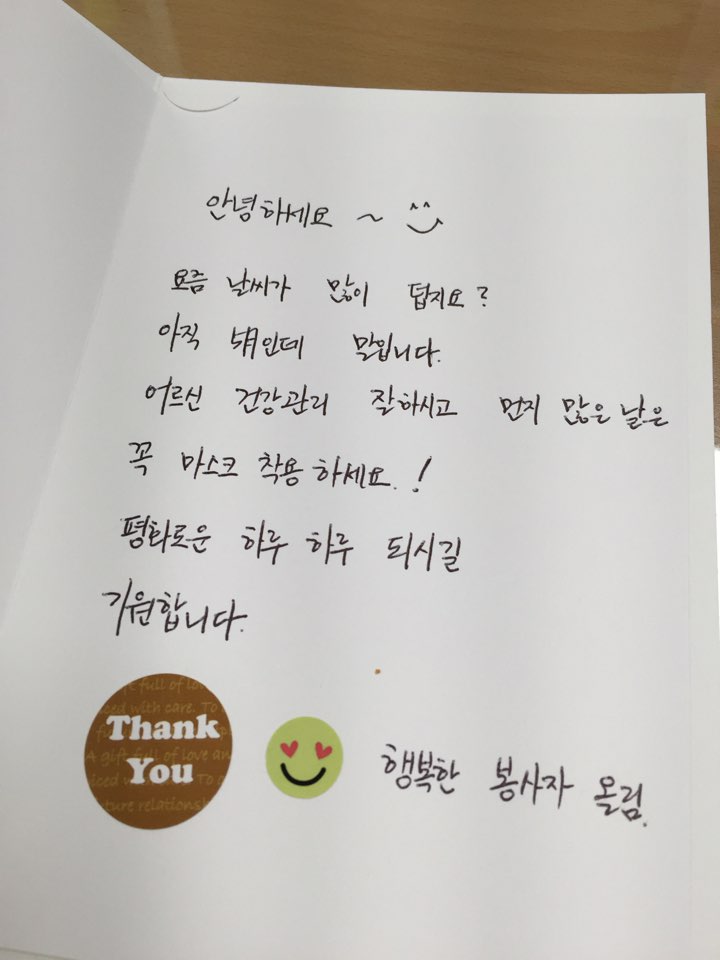 안녕하세요 ~ ^^
요즘 날씨가 많이 덥지요?
아직 5월인데 말입니다.
어르신 건강관리 잘하시고 먼지 많은 날은
꼭 마스크 착용하세요.!
평화로운 하루 하루 되시길
기원합니다.
full of lo
ced with care. To
Thank
A gift full of love an
You
ture relations
행복한 봉사자 올림.